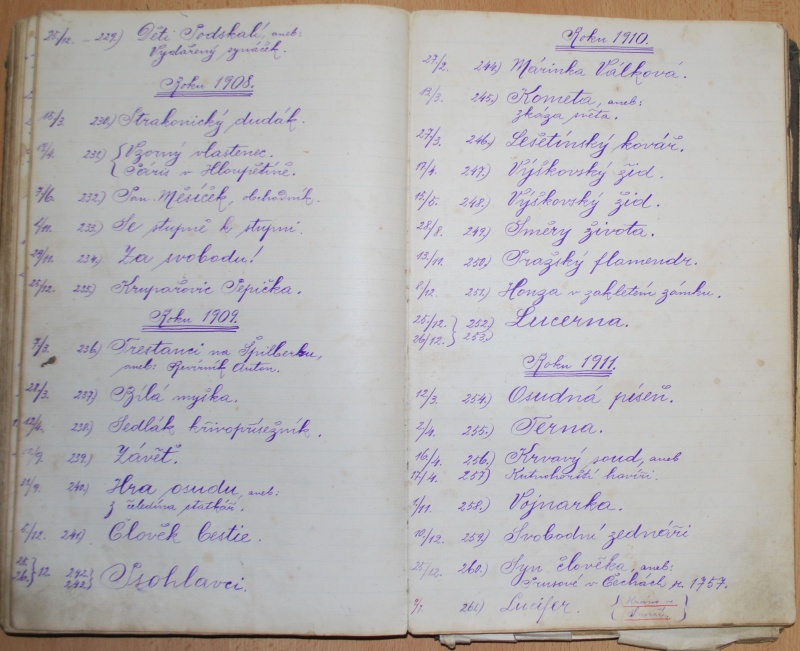 25/12. - 229.) Děti Podskalí, aneb:
Vydařený synáček.
Roku 1908.
15/3. 230.) Strakonický dudák.
231.) { Vzorný vlastenec.
{ Páris v Hloupětíně.
7/6. 232.) Pan Měsíček, obchodník.
1/11. 233.) Se stupně k stupni.
29/11. 234.) Za svobodu!
25/12. 235.) Krupařovic Pepička.
Roku 1909.
7/3. 236.) Trestanci na Špilberku,
aneb: Revírník Anton.
28/3. 237.) Bílá myška.
238.) Sedlák křivopřísežník.
239.) Závěť.
240.) Hra osudu, aneb:
z čeledína statkář.
5/12. 241.) Člověk bestie.
25. } 12. 242. }
26. } 243.) } Psohlavci.
Roku 1910.
27/2. 244.) Márinka Válková.
13/3. 245.) Kometa, aneb:
zkáza světa.
27/3. 246.) Lešetínský kovář.
17/4. 247.) Výškovský žid.
15/5. 248.) Výškovský žid.
28/8. 249.) Směry života.
13/11. 250.) Pražský flamendr.
8/12. 251.) Honza v zakletém zámku.
25/12. } 252.) Lucerna.
26/12. } 253.)
Roku 1911.
12/3. 254.) Osudná píseň.
2/4. 255.) Terna.
16/4. 256.) Krvavý soud, aneb
17/4. 257.) Kutnohorští havíři.
1/11. 258.) Vojnarka.
10/12. 259.) Svobodní zednáři
25/12. 260.) Syn člověka, aneb:
Prusové v Čechách r. 1757.
261.) Lucifer.